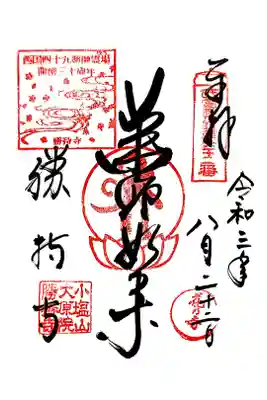 奉拝
令和三年
八月二十二日
薬師如来
西国四十九薬師霊場
開創三十周年
勝持寺
勝持寺
小塩山
大原院
勝持寺